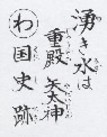 湧き水は
重殿 天神
わ 国史跡